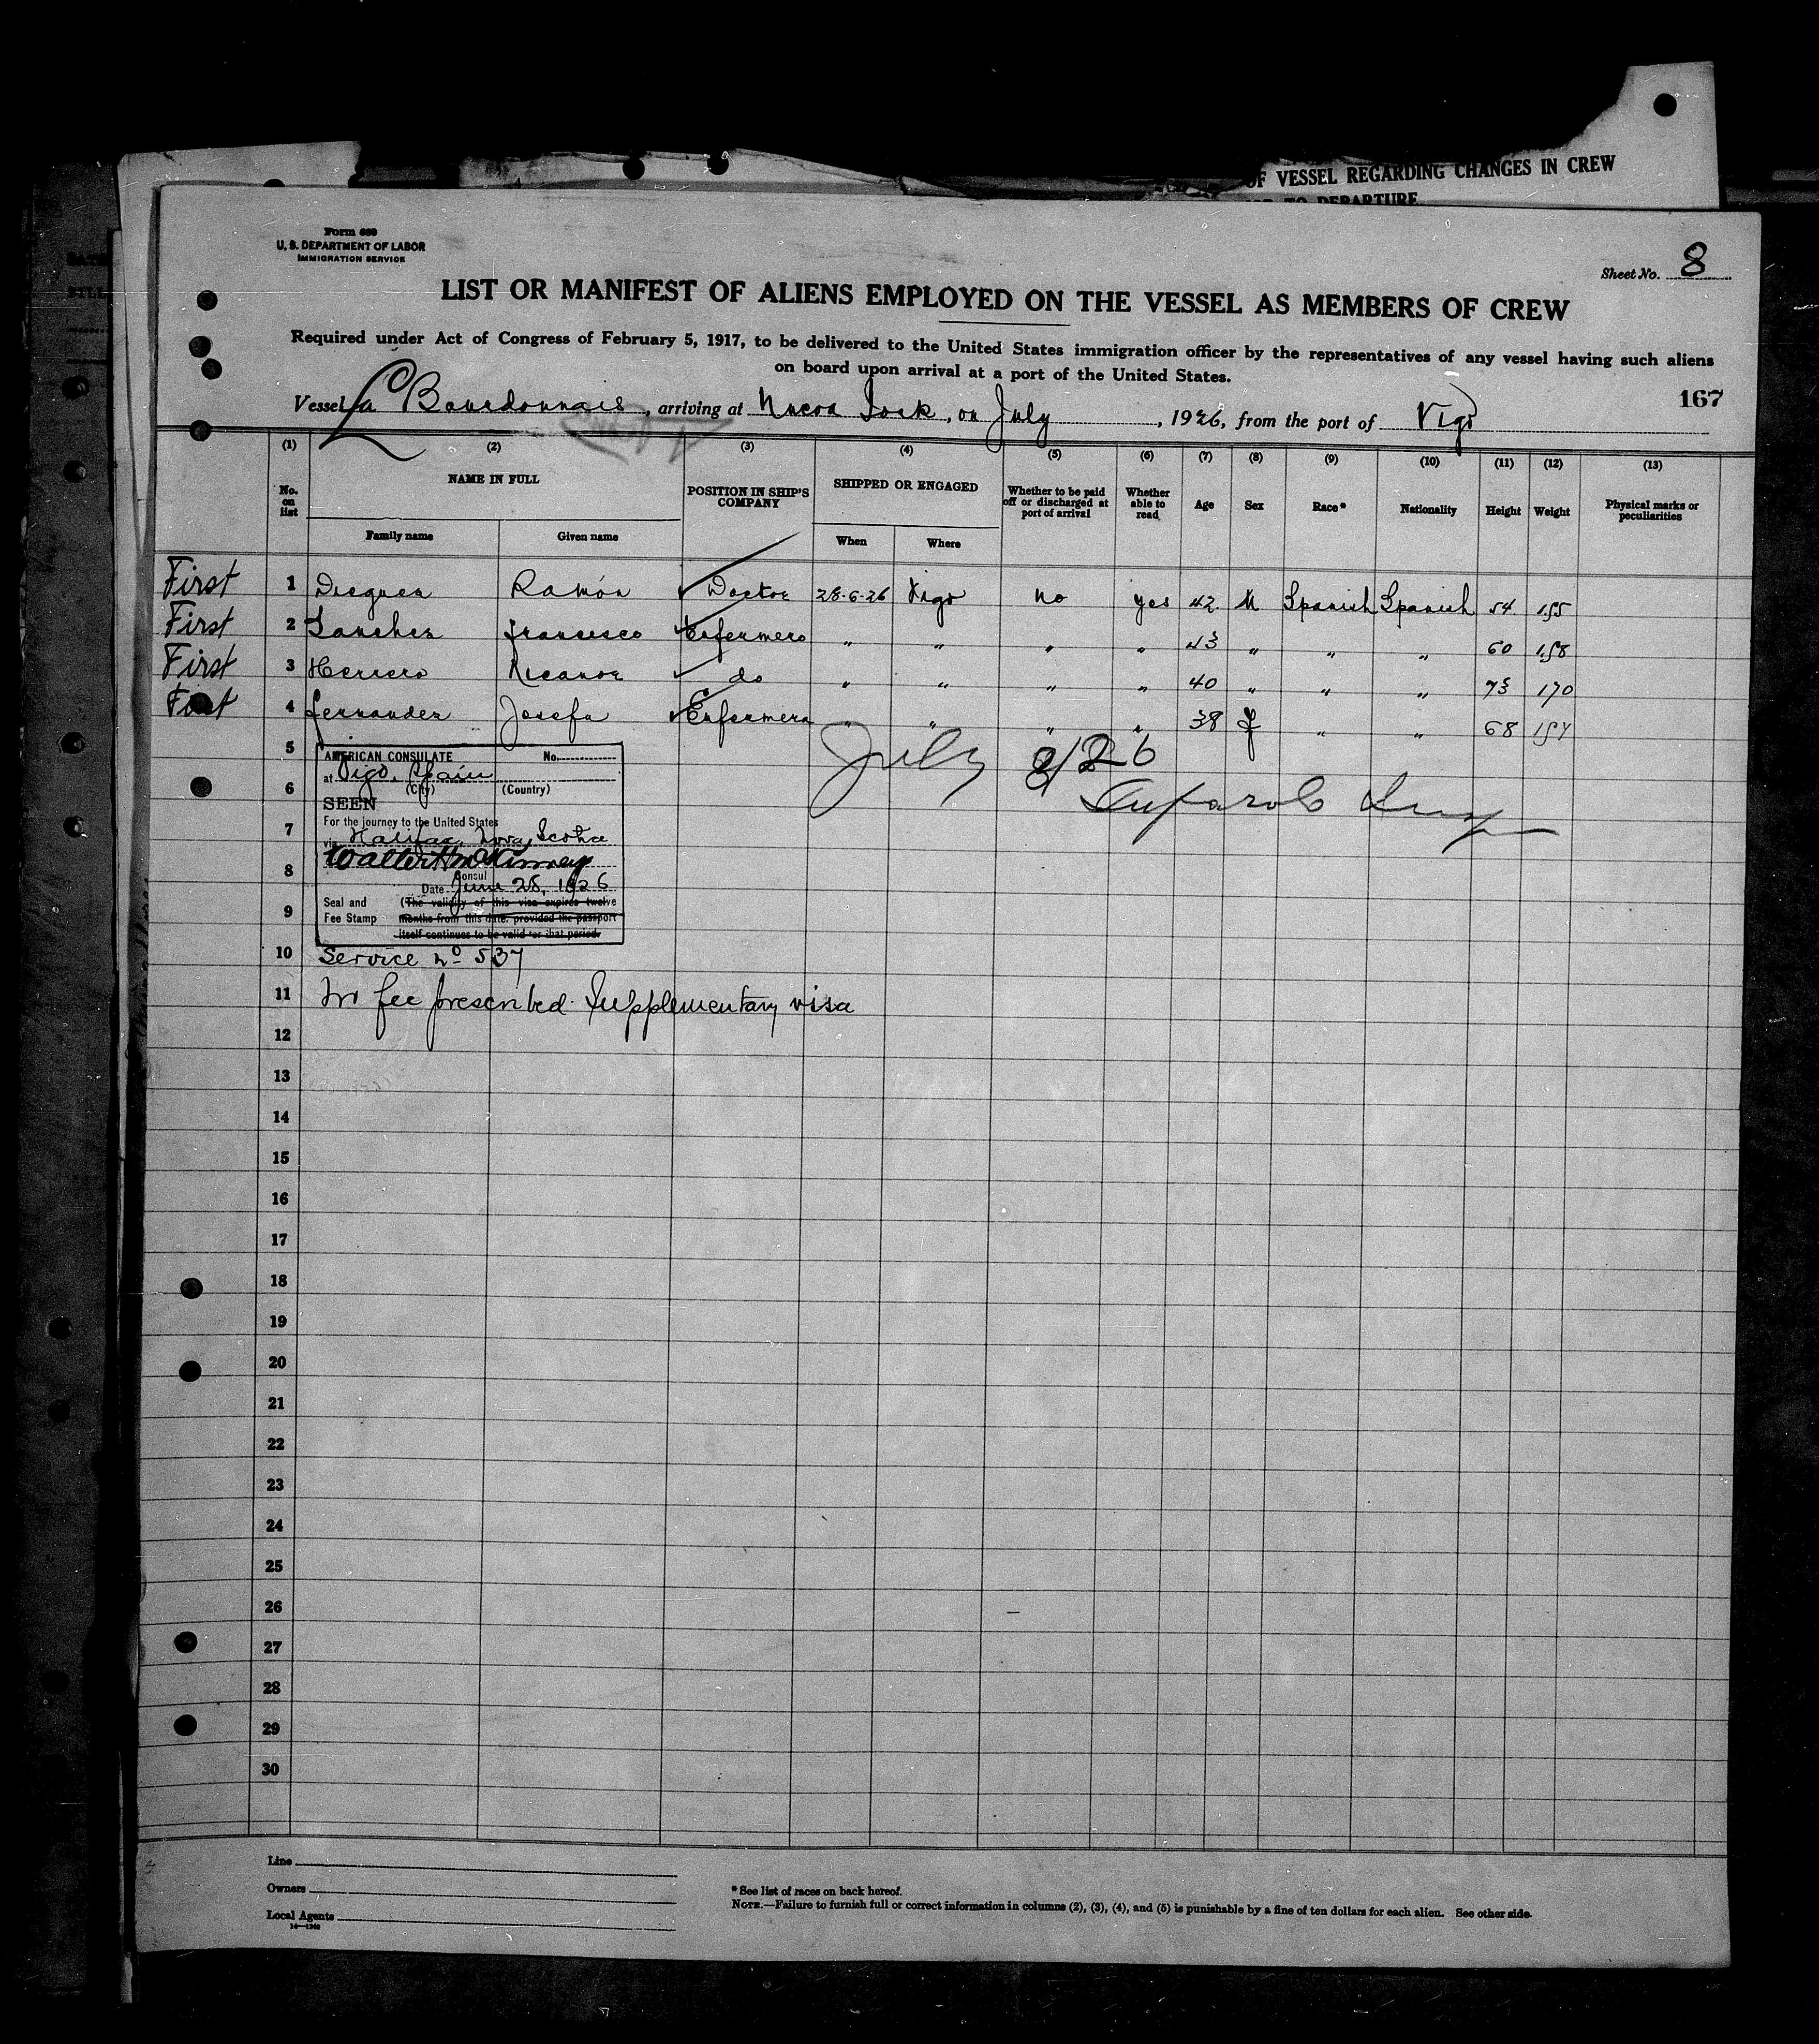 OF VESSEL REGARDING CHANGES IN CREW
TO DEPARTURE
Form 689
U. S. DEPARTMENT OF LABOR
IMMIGRATION SERVICE
Sheet No. 8
LIST OR MANIFEST OF ALIENS EMPLOYED ON THE VESSEL AS MEMBERS OF CREW
Required under Act of Congress of February 5, 1917, to be delivered to the United States immigration officer by the representatives of any vessel having such aliens
on board upon arrival at a port of the United States.
167
Vessel La Bourdonnais, arriving at York, on July, 1926, from the port of Vigo
(1) (2) (3) (4) (5) (6) (7) (8) (9) (10) (11) (12) (13)
No. on list NAME IN FULL POSITION IN SHIP'S COMPANY SHIPPED OR ENGAGED Whether to be paid off or discharged at port of arrival Whether able to read Age Sex Race* Nationality Height Weight Physical marks or peculiarities
Family name Given name When Where
First 1 Dieguez Ramón Doctor 28-6-26 Vigo No yes 42 M Spanish Spanish 54 155
First 2 Sanchez Francisco Enfermero " " " " 43 " " " 60 158
First 3 Herrero Nicanor do " " " " 40 " " " 73 170
First 4 Fernandez Josefa Enfermera " " " " 38 f " " 68 154
5
6
7
8
9
10
11
12
13
14
15
16
17
18
19
20
21
22
23
24
25
26
27
28
29
30
July 8/26
AMERICAN CONSULATE No.
at Vigo, Spain
(City) (Country)
SEEN
For the journey to the United States
via Halifax, Nova Scotia
Walter H McKinney
Consul
Date June 28, 1926
Seal and Fee Stamp (The validity of this visa expires twelve
months from this date. provided the passport
itself continues to be valid for that period.
Service no 537
No fee prescribed. Supplementary visa
Line
Owners
Local Agents
14—1240
* See list of races on back hereof.
NOTE.—Failure to furnish full or correct information in columns (2), (3), (4), and (5) is punishable by a fine of ten dollars for each alien. See other side.